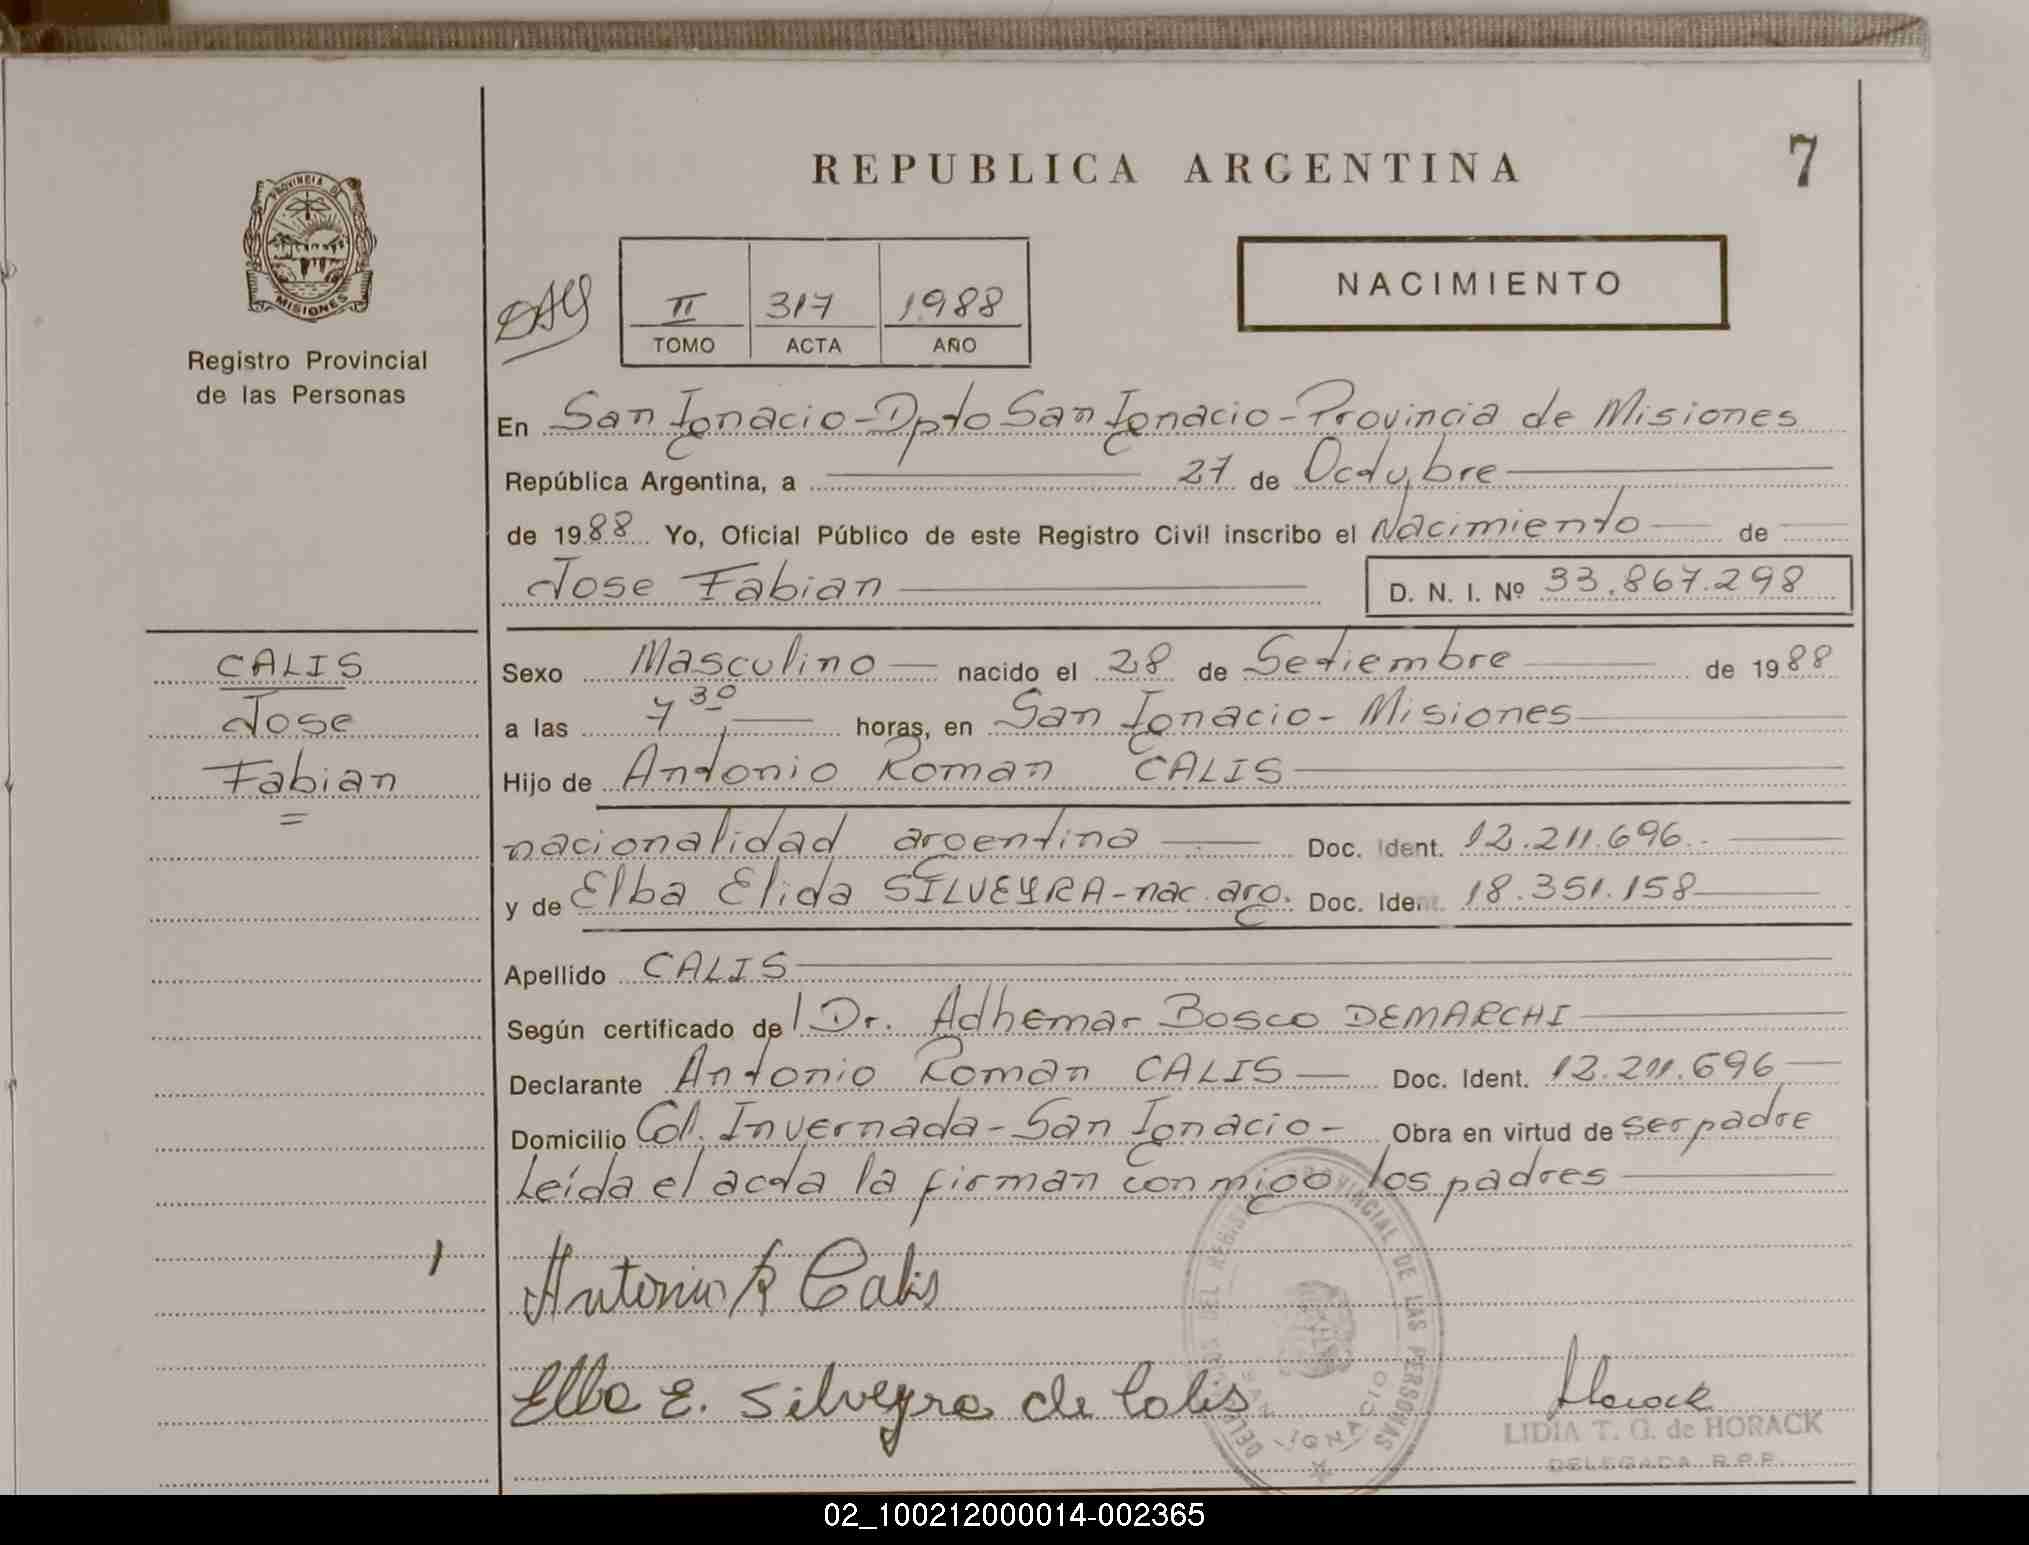 REPUBLICA ARGENTINA
7
PROVINCIA DE
MISIONES
Registro Provincial
de las Personas
II 317 1988
TOMO ACTA AÑO
NACIMIENTO
En San Ignacio - Dpto San Ignacio - Provincia de Misiones
República Argentina, a 27 de Octubre
de 1988 Yo, Oficial Público de este Registro Civil inscribo el Nacimiento de
Jose Fabian D. N. I. Nº 33.867.298
CALIS
Jose
Fabian
=
Sexo Masculino nacido el 28 de Setiembre de 1988
a las 7 30 horas, en San Ignacio - Misiones
Hijo de Antonio Roman CALIS
nacionalidad argentina Doc. Ident. 12.211.696.
y de Elba Elida SILVEYRA - nac. arg. Doc. Ident. 18.351.158
Apellido CALIS
Según certificado de Dr. Adhemar Bosco DEMARCHI
Declarante Antonio Roman CALIS Doc. Ident. 12.211.696
Domicilio Col. Invernada - San Ignacio - Obra en virtud de ser padre
Leída el acta la firman conmigo los padres
Antonio R Calis
Elba E. Silveyra de Calis
Horack
LIDIA T. G. de HORACK
DELEGADA R.P.P.
PROVINCIAL DE LAS PERSONAS
SAN IGNACIO
02_100212000014-002365